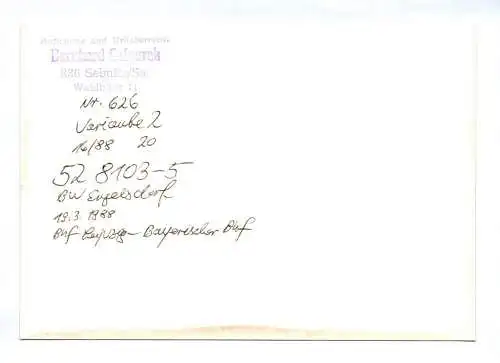 Aufnahme und Urheberrecht
Bernhard
836 Sebnitz/Sa.
11
Nr. 626
Variante 2
16/88 20
52 8103-5
BW Engelsdorf
19.3.1988
Bhf Leipzig - Bayerischer Bhf